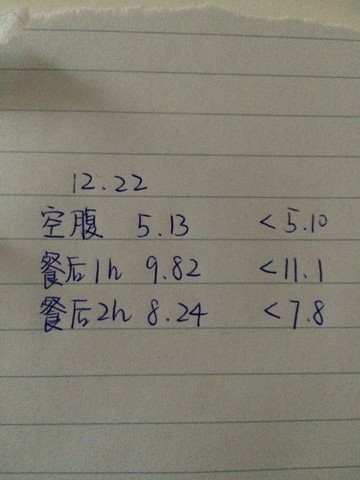 12.22
空腹 5.13 <5.10
餐后1h 9.82 <11.1
餐后2h 8.24 <7.8